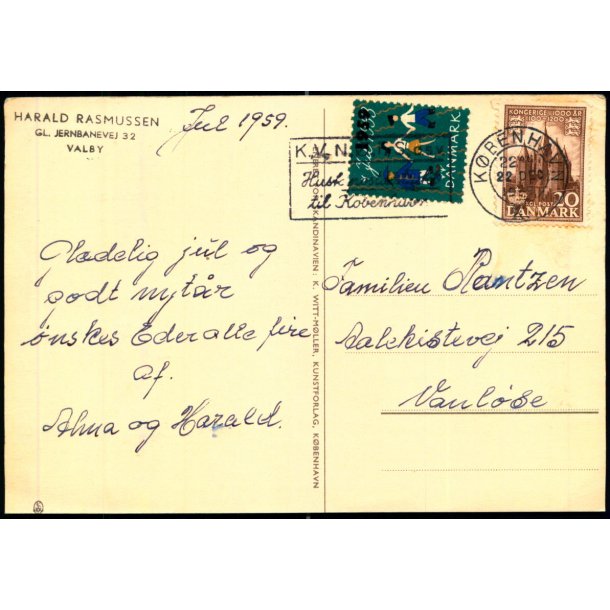 HARALD RASMUSSEN
GL. JERNBANEVEJ 32
VALBY
Jul 1959.
Glædelig jul og
godt nytår
ønskes Eder alle fire
af.
Alma og Harald.
K.V.N.
Husk
til København
Jul
DANMARK
KØBENHAVN
22. DEC
KONGERIGE I 1000 ÅR
20
DANMARK
SKANDINAVIEN: K. WITT-MØLLER, KUNSTFORLAG, KØBENHAVN
Familien Rantzen
Aalekistevej 215
Vanløse